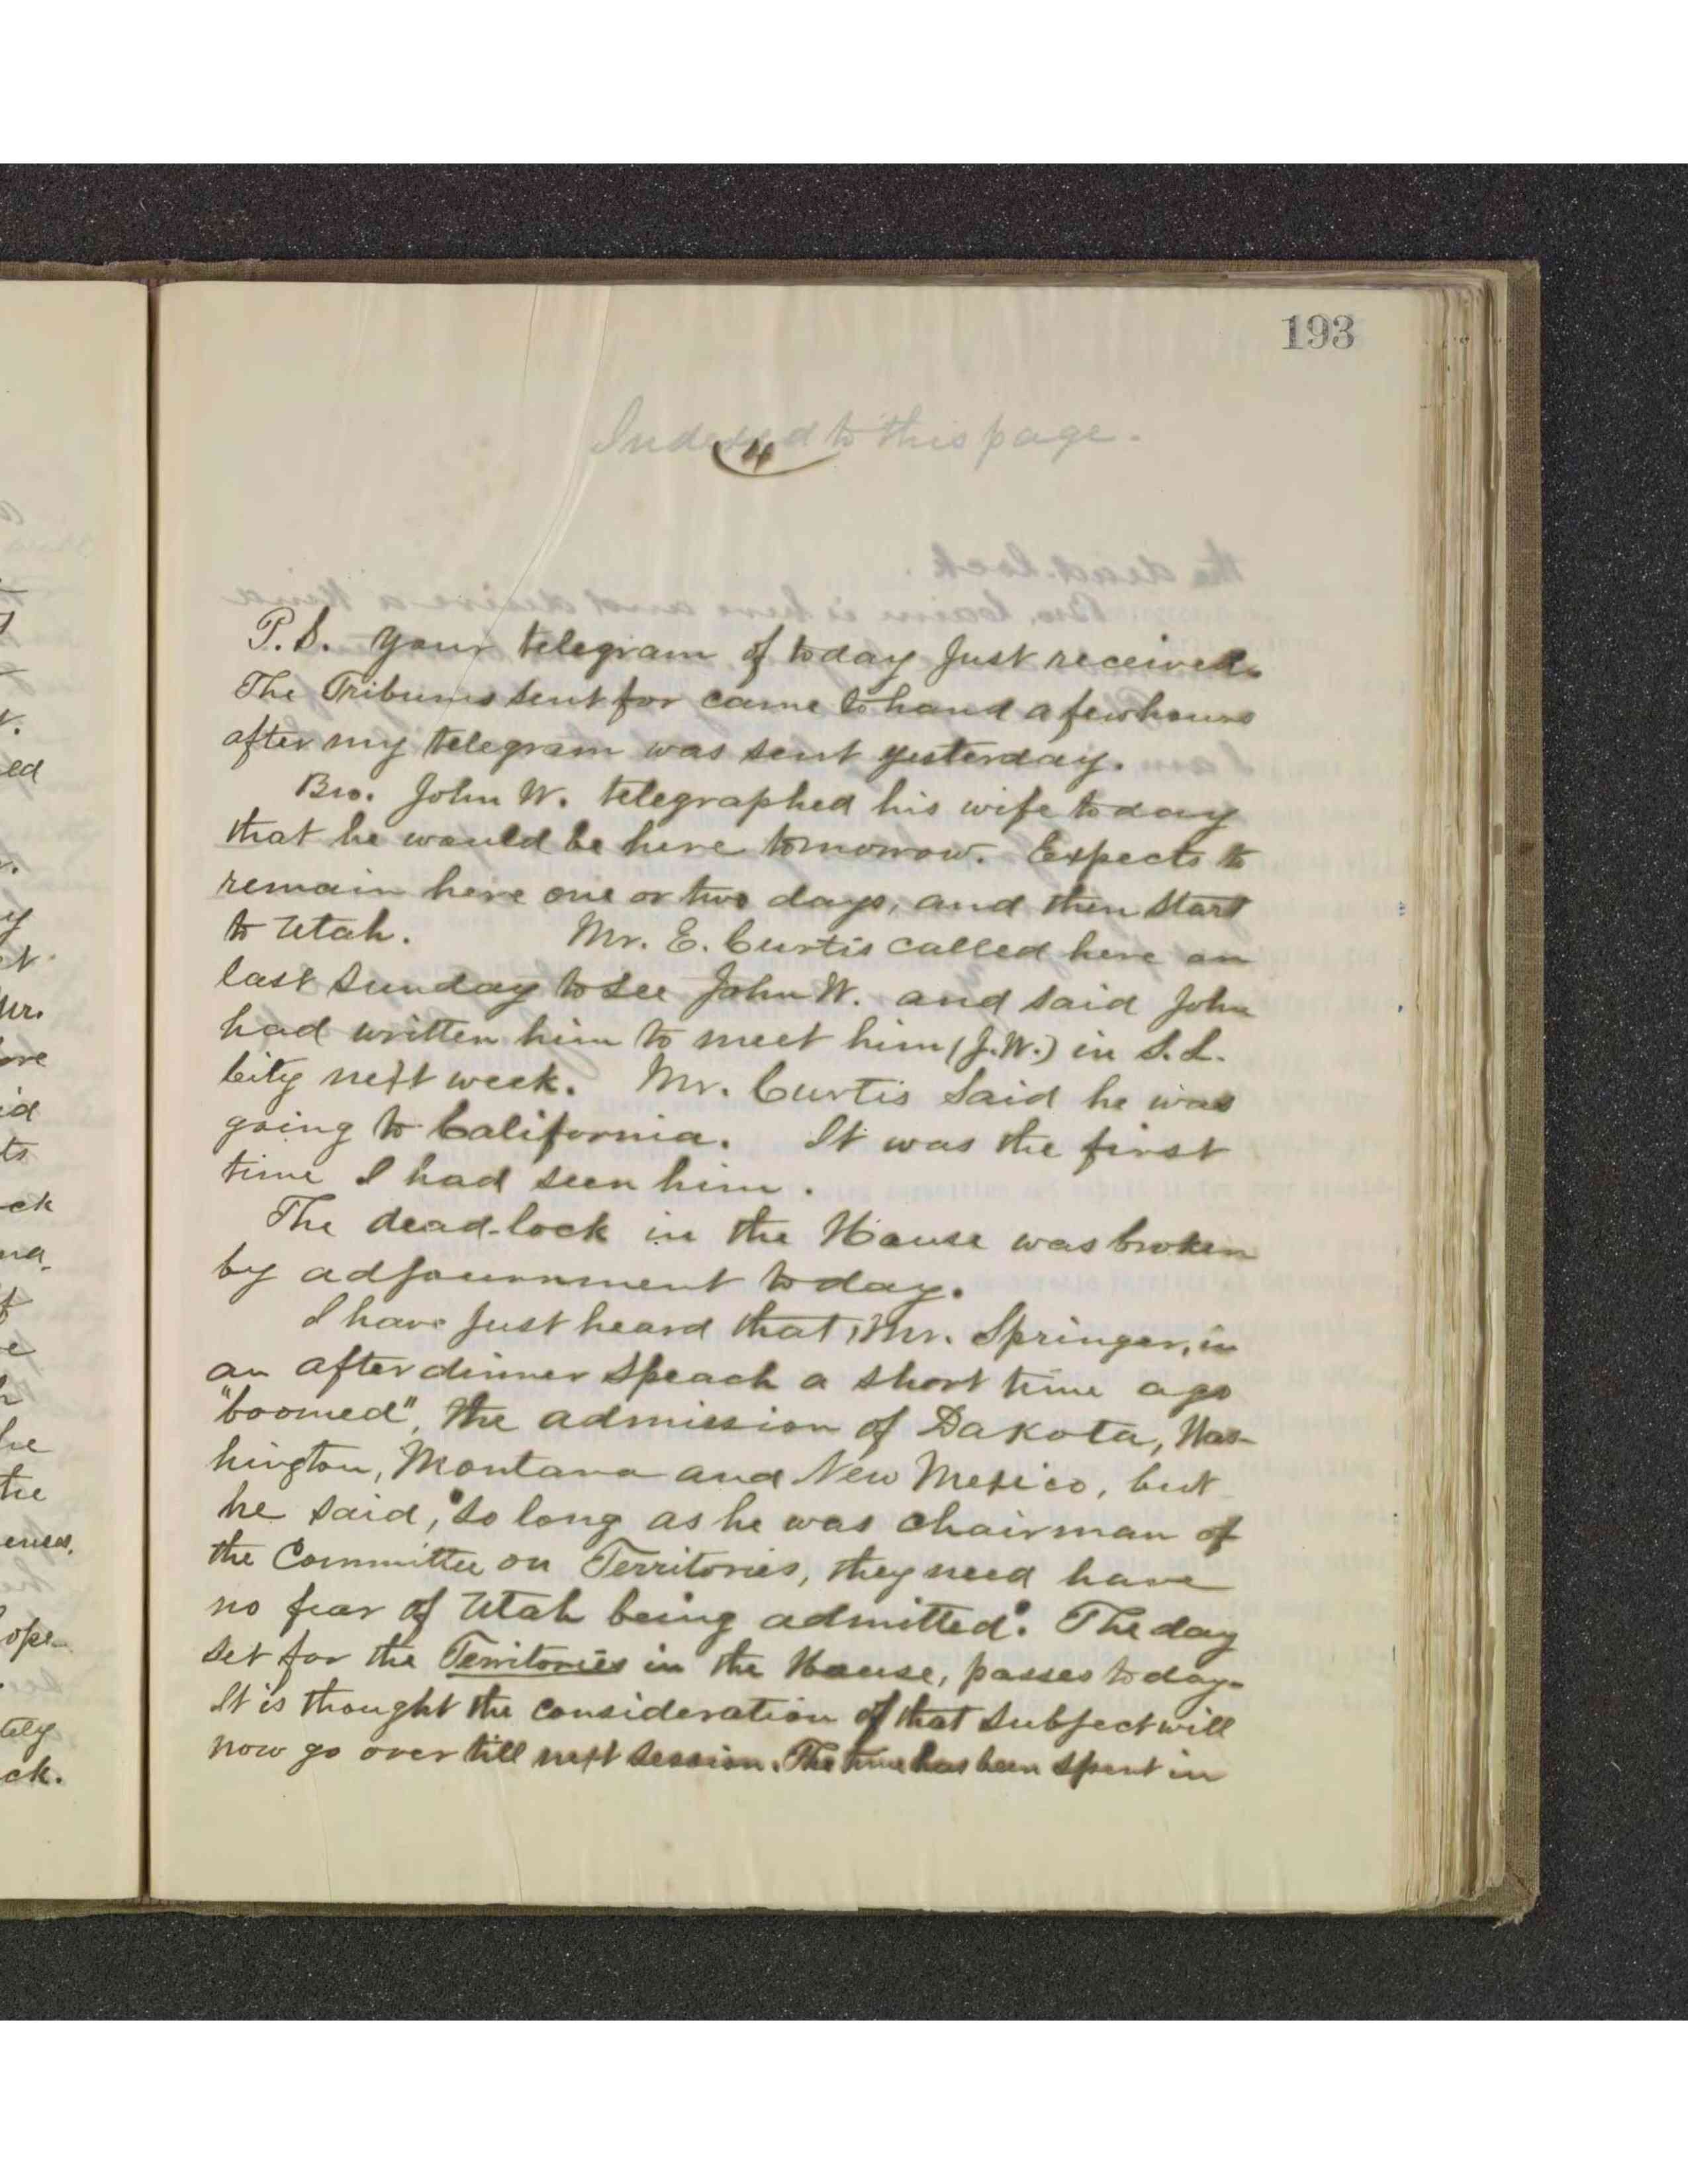 193
Indexed to this page.
4
P.S. Your telegram of today just received.
The Tribunes sent for came to hand a few hours
after my telegram was sent yesterday.
Bro. John W. telegraphed his wife today
that he would be here tomorrow. Expects to
remain here one or two days, and then start
to Utah. Mr. E. Curtis called here on
last Sunday to see John W. and said John
had written him to meet him (J.W.) in S.L.
City next week. Mr. Curtis said he was
going to California. It was the first
time I had seen him.
The dead-lock in the House was broken
by adjournment today.
I have just heard that, Mr. Springer, in
an after dinner speach a short time ago
"boomed", the admission of Dakota, Was-
hington, Montana and New Mexico, but
he said, "so long as he was chairman of
the Committee on Territories, they need have
no fear of Utah being admitted". The day
set for the Territories in the House, passes today.
It is thought the consideration of that subject will
now go over till next session. The time has been spent in